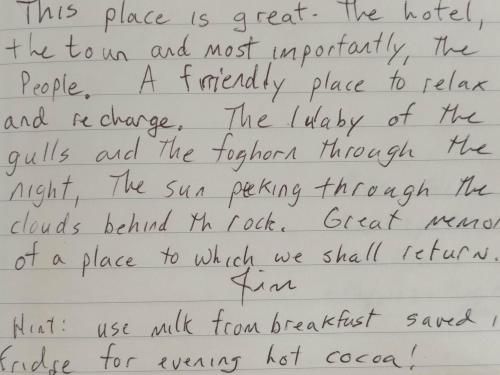 This place is great. The hotel,
the town and most importantly, the
People. A friendly place to relax
and recharge. The lulaby of the
gulls and the foghorn through the
night, The sun peeking through the
clouds behind th rock. Great memor
of a place to which we shall return.
Jim
Hint: use milk from breakfast saved i
fridge for evening hot cocoa!